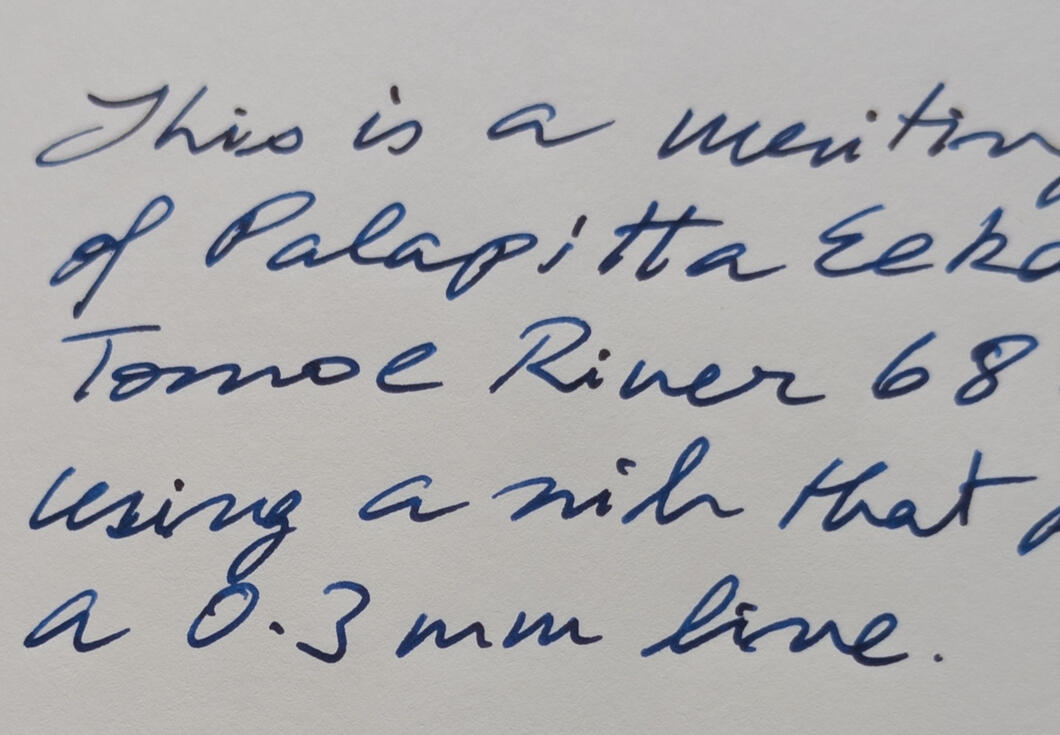 This is a writing
of Palapitta
Tomoe River 68
using a nib that
a 0.3 mm line.